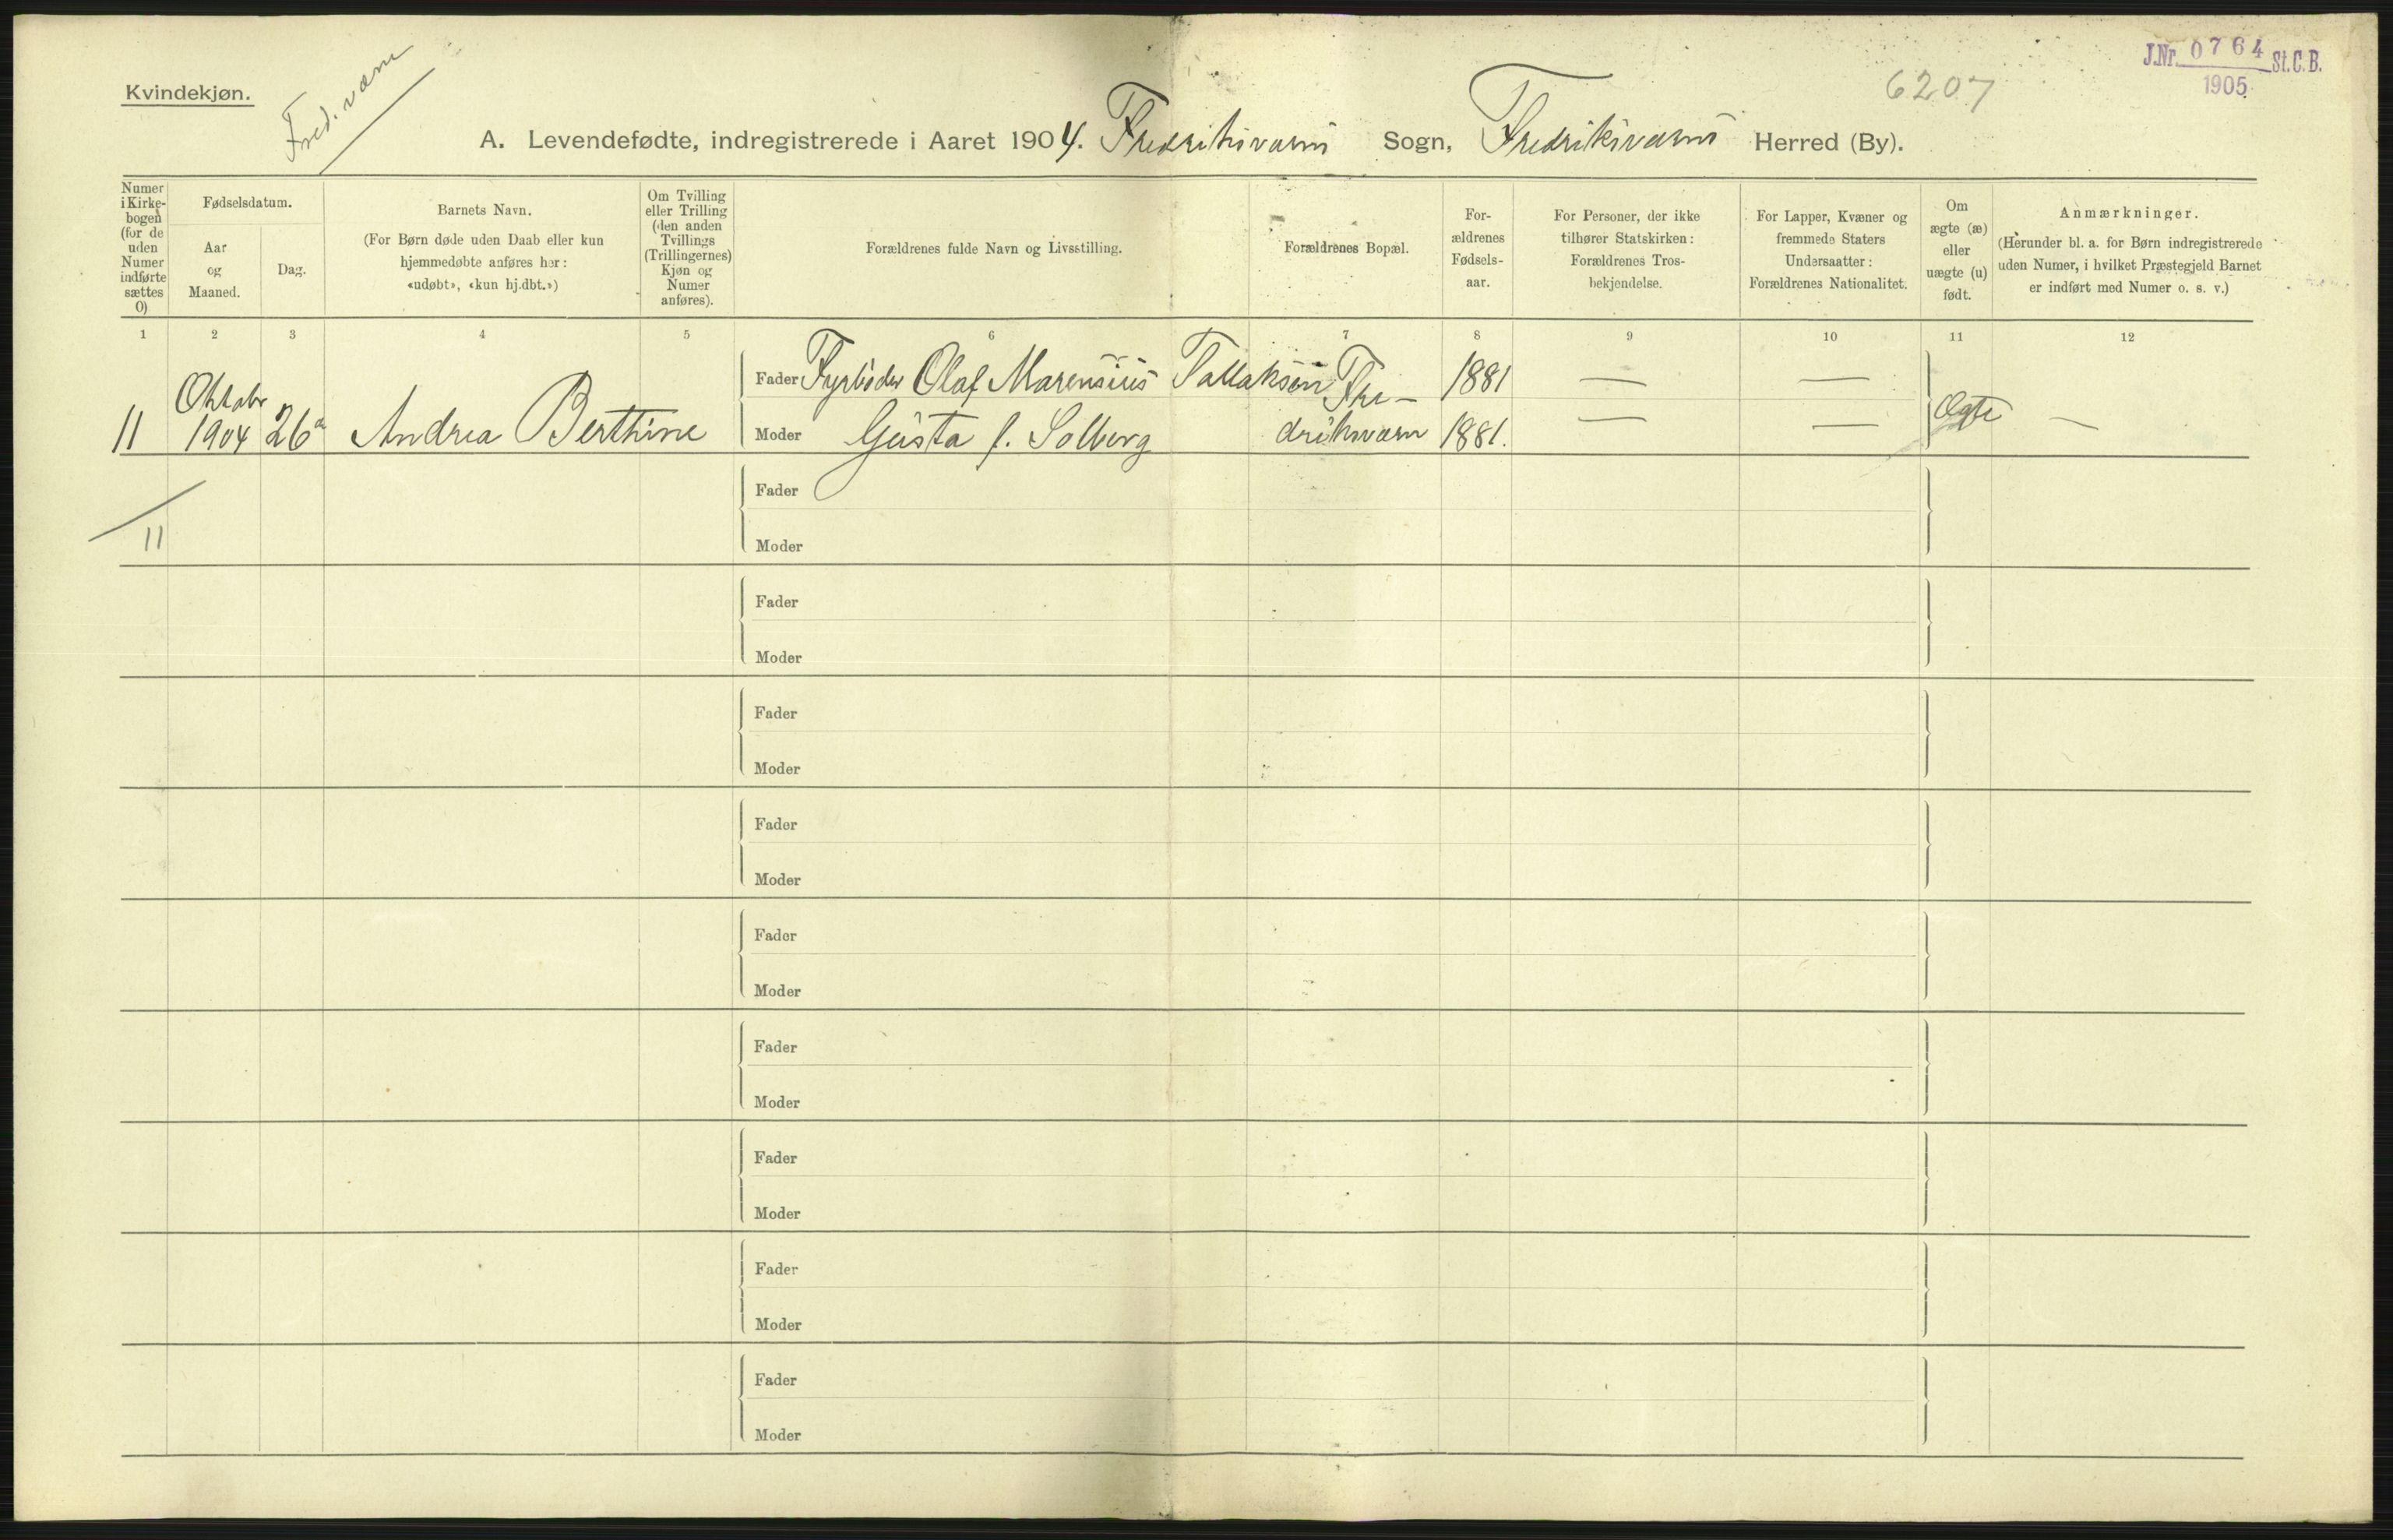 J.Nr. 0764 St.C.B.
1905
6207
Kvindekjøn.
Fred. værn
A. Levendefødte, indregistrerede i Aaret 1904. Fredriksværns Sogn, Fredriksværns Herred (By).
Numer i Kirkebogen (for de uden Numer indførte sættes 0)
Fødselsdatum.
Aar og Maaned.
Dag.
Barnets Navn.
(For Børn døde uden Daab eller kun hjemmedøbte anføres her: «udøbt», «kun hj.dbt.»)
Om Tvilling eller Trilling (den anden Tvillings (Trillingernes) Kjøn og Numer anføres).
Forældrenes fulde Navn og Livsstilling.
Forældrenes Bopæl.
Forældrenes Fødselsaar.
For Personer, der ikke tilhører Statskirken: Forældrenes Trosbekjendelse.
For Lapper, Kvæner og fremmede Staters Undersaatter: Forældrenes Nationalitet.
Om ægte (æ) eller uægte (u) født.
Anmærkninger.
(Herunder bl. a. for Børn indregistrerede uden Numer, i hvilket Præstegjeld Barnet er indført med Numer o. s. v.)
1 2 3 4 5 6 7 8 9 10 11 12
Fader Fyrbøder Olaf Marensius Tallaksen Fre- 1881 — —
11 Oktober 1904 26 Andrea Berthine Moder Gusta f. Solberg driksværn 1881. — — Ægte —
11
Fader
Moder
Fader
Moder
Fader
Moder
Fader
Moder
Fader
Moder
Fader
Moder
Fader
Moder
Fader
Moder
Fader
Moder